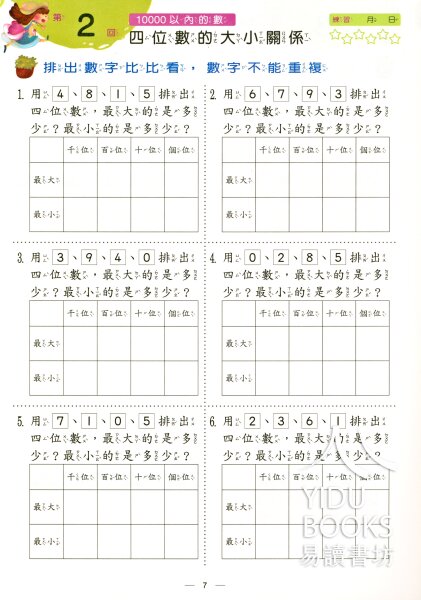 第2回
10000以內的數
練習 月 日
四位數的大小關係
排出數字比比看，數字不能重複
1. 用4、8、1、5排出
四位數，最大的是多
少？最小的是多少？
千位 百位 十位 個位
最大
最小
2. 用6、7、9、3排出
四位數，最大的是多
少？最小的是多少？
千位 百位 十位 個位
最大
最小
3. 用3、9、4、0排出
四位數，最大的是多
少？最小的是多少？
千位 百位 十位 個位
最大
最小
4. 用0、2、8、5排出
四位數，最大的是多
少？最小的是多少？
千位 百位 十位 個位
最大
最小
5. 用7、1、0、5排出
四位數，最大的是多
少？最小的是多少？
千位 百位 十位 個位
最大
最小
6. 用2、3、6、1排出
四位數，最大的是多
少？最小的是多少？
千位 百位 十位 個位
最大
最小
YIDU
BOOKS
易讀書坊
— 7 —